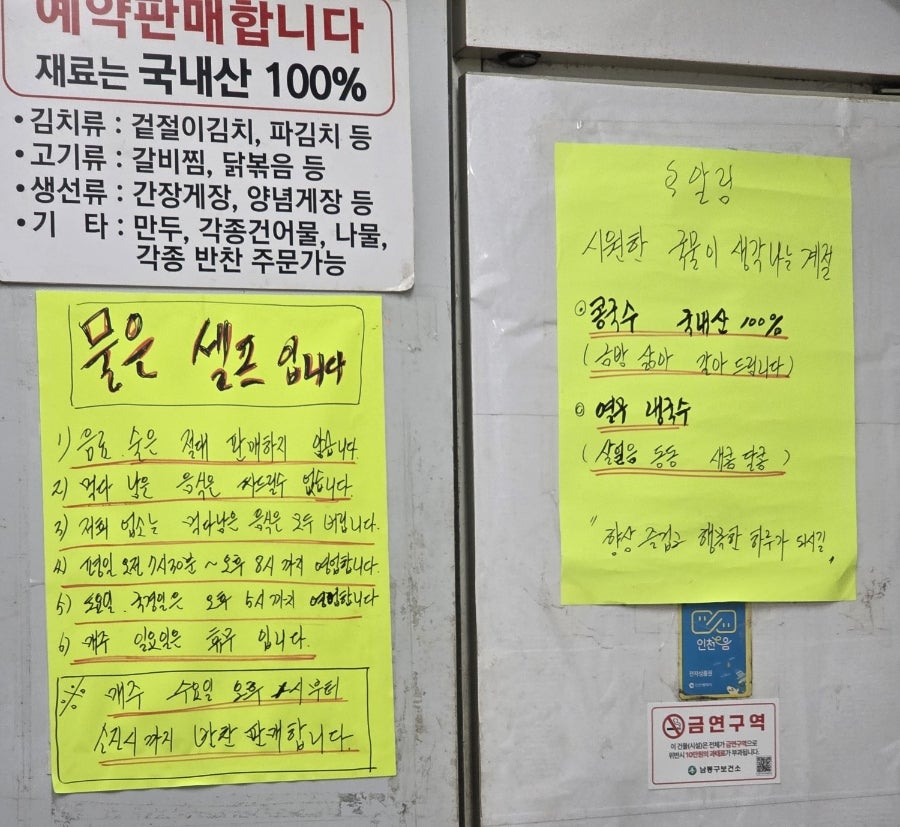 예약판매합니다
재료는 국내산 100%
• 김치류 : 겉절이김치, 파김치 등
• 고기류 : 갈비찜, 닭볶음 등
• 생선류 : 간장게장, 양념게장 등
• 기 타 : 만두, 각종건어물, 나물,
각종 반찬 주문가능
물은 셀프 입니다
1) 음료. 술은 절대 판매하지 않습니다
2) 먹다 남은 음식은 싸드릴수 없습니다.
3) 저희 업소는 먹다남은 음식은 모두 버립니다.
4) 평일 오전 7시30분 ~ 오후 8시 까지 영업합니다.
5) 토요일. 국경일은 오후 5시까지 영업합니다
6) 매주 일요일은 휴무 입니다.
※ 매주 수요일 오후 시부터
소진시까지 반찬 판매합니다.
알림
시원한 국물이 생각나는 계절
⊙ 콩국수 국내산 100%
(금방 삶아 갈아 드립니다)
⊙ 열무 냉국수
(살얼음 동동 새콤 달콤)
"항상 즐겁고 행복한 하루가 되시길"
인천e음
전자상품권
인천광역시
금연구역
이 건물(시설)은 전체가 금연구역으로
위반시 10만원의 과태료가 부과됩니다.
남동구보건소